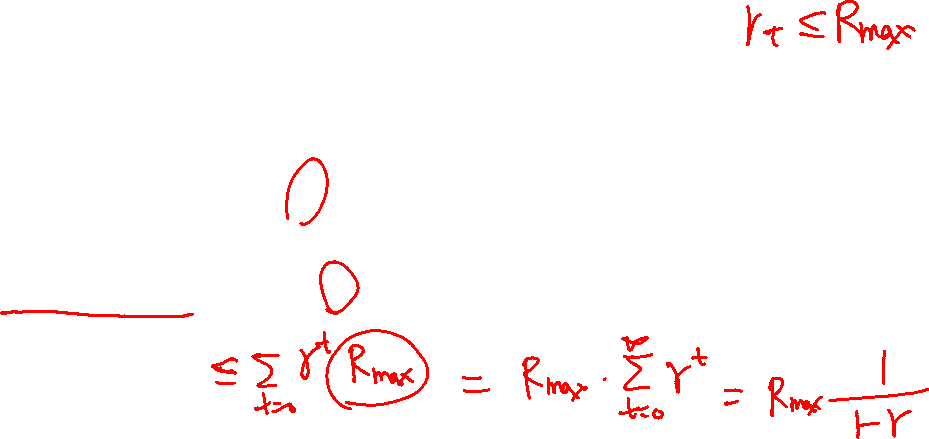 r_t ≤ R_max
≤ ∑_{t=0} γ^t R_max = R_max · ∑_{t=0}^{∞} γ^t = R_max 1/(1-γ)